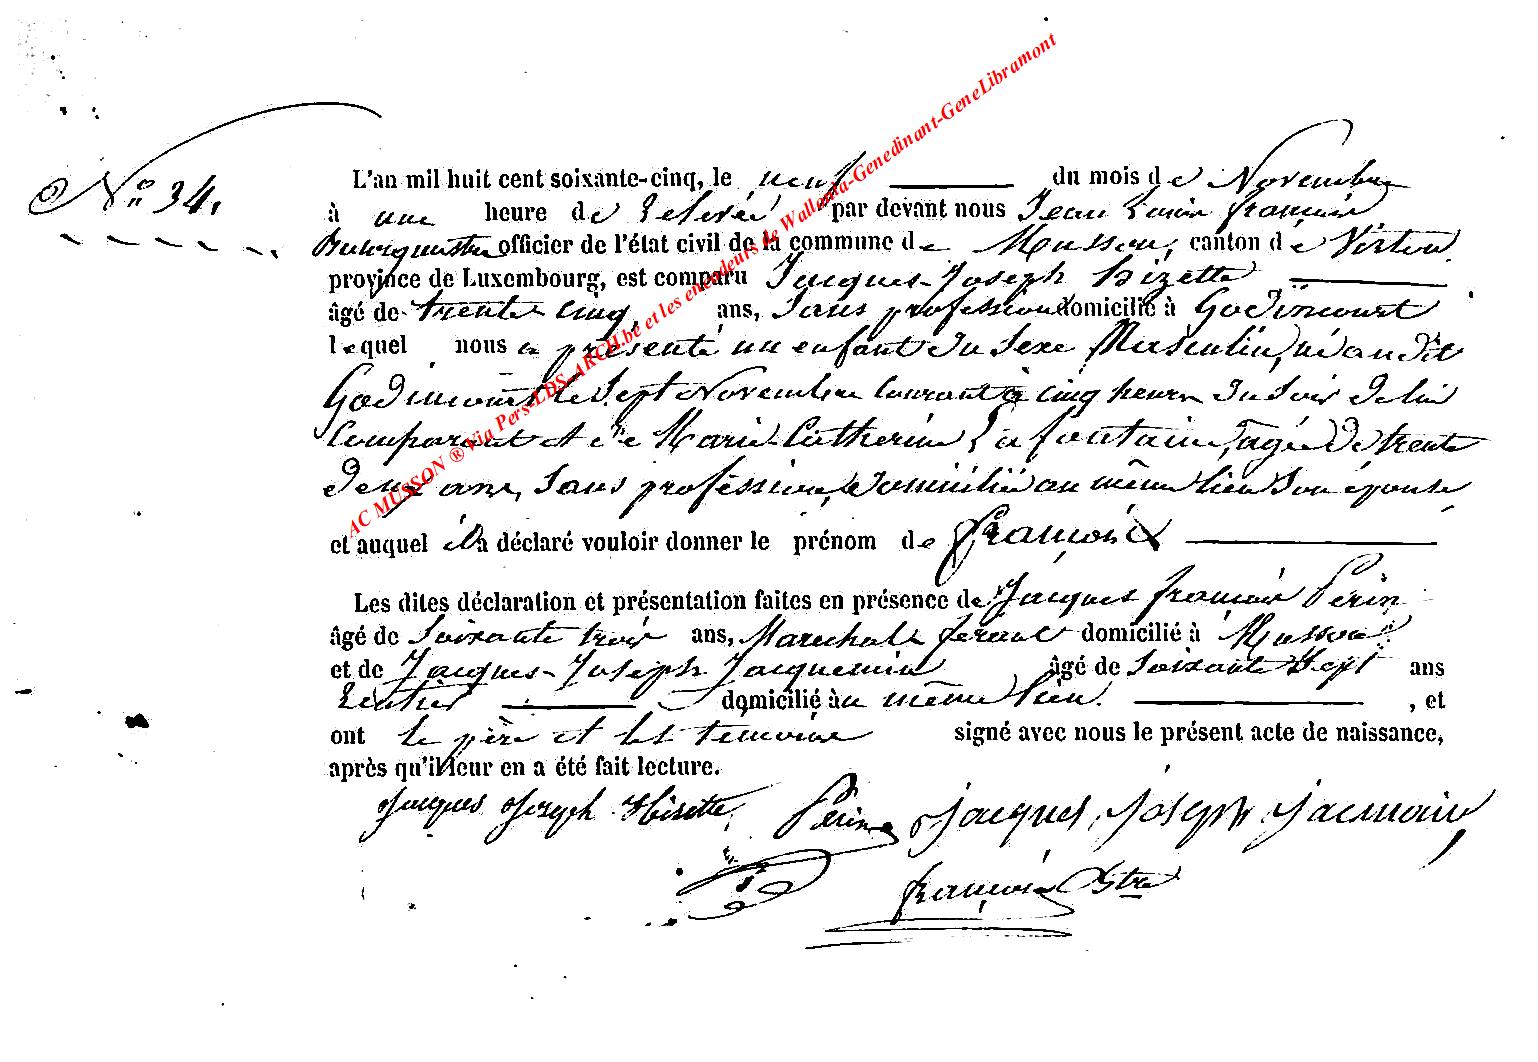 N° 34.
L'an mil huit cent soixante-cinq, le neuf du mois de Novembre
à une heure de relevée par devant nous Jean Louis françois
Bourgumestre officier de l'état civil de la commune de Musson, canton de Virton
province de Luxembourg, est comparu Jacques-Joseph hizette
âgé de trente cinq, ans, Sans profession domicilié à Godincourt
lequel nous a présenté un enfant du Sexe Masculin, né au dit
Godincourt le Sept Novembre Courant à cinq heures du soir de lui
Comparant et de Marie-Catherine Lafontaine, agée de trente
deux ans, Sans profession, domiciliée au même lieu Son épouse,
et auquel il a déclaré vouloir donner le prénom de françois
Les dites déclaration et présentation faites en présence de Jacques françois Périn
âgé de Soixante trois ans, Marechal ferant domicilié à Musson
et de Jacques-Joseph Jacquemin âgé de Soixante Sept ans
Rentier domicilié au même lieu. , et
ont le père et les temoins signé avec nous le présent acte de naissance,
après qu'il leur en a été fait lecture.
Jacques Joseph Hisette Périn Jacques, Joseph Jacmain,
françois Bstre
AC MUSSON ® Via Pers-LDS-ARCH.be et les encodeurs de Wallonia-Genedinant-GeneLibramont